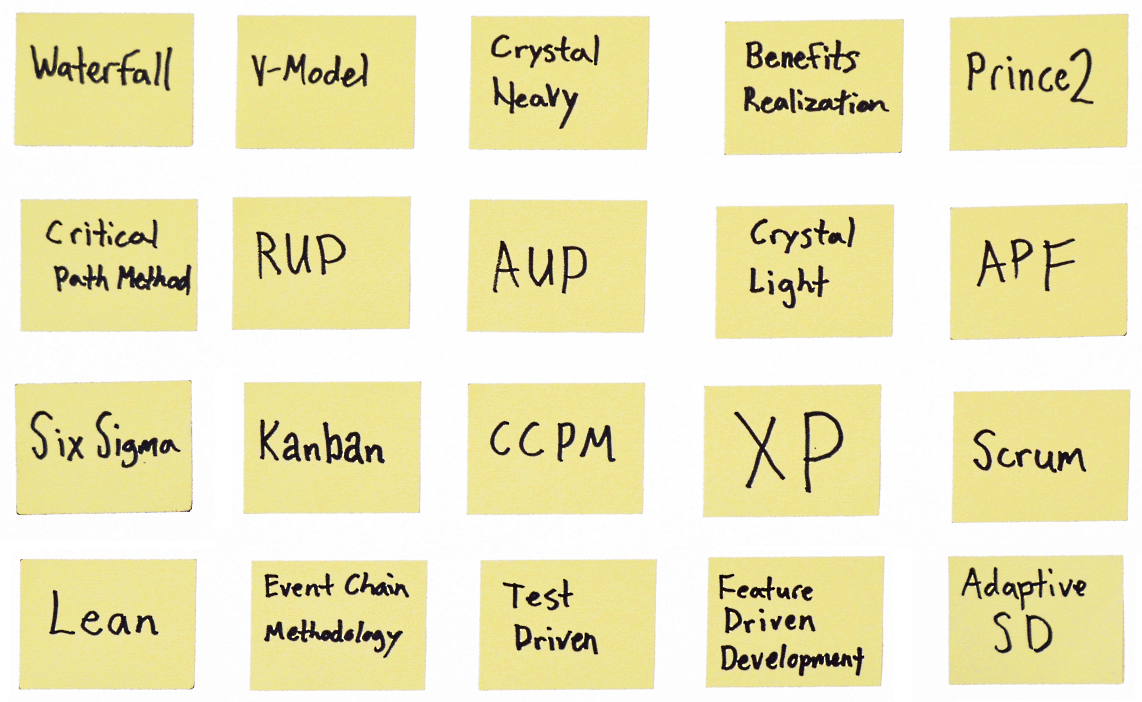 Waterfall
V-Model
Crystal
Heavy
Benefits
Realization
Prince2
Critical
Path Method
RUP
AUP
Crystal
Light
APF
Six Sigma
Kanban
CCPM
XP
Scrum
Lean
Event Chain
Methodology
Test
Driven
Feature
Driven
Development
Adaptive
SD